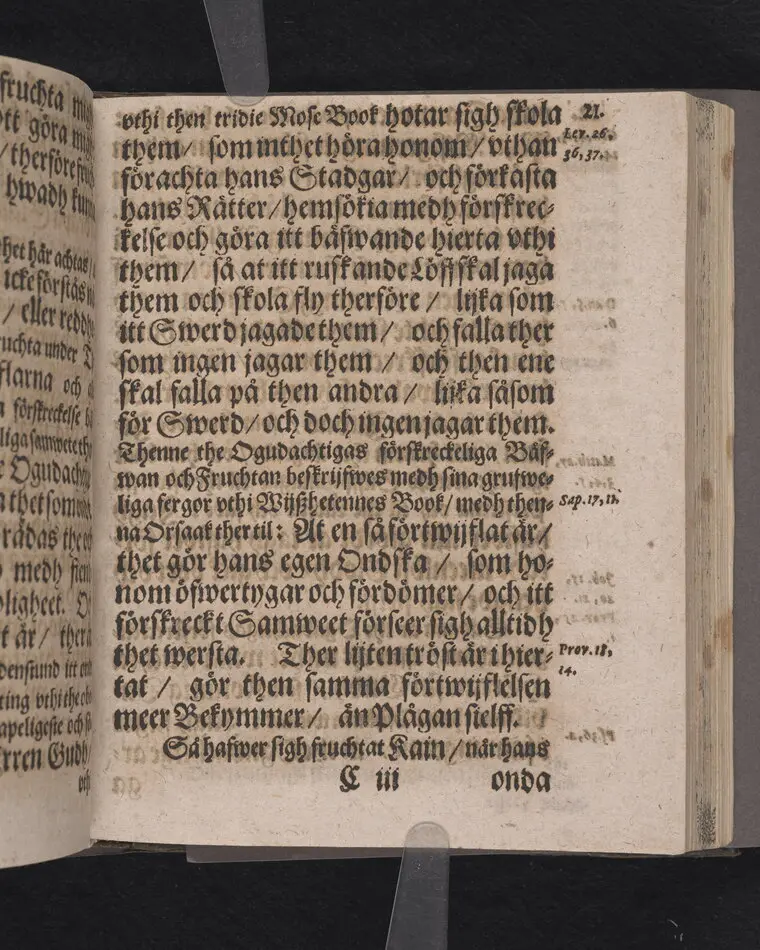 fruchta
ott göra
/ therföre
hwadh
het här achtas
icke förstås
/ eller
fruchta under
flarna och
förskreckelse
Ogudach
thet som
rädas
medh
ligheet.
t är / ther
ting vthi the
Herren Gudh
21.
vthi then tridie Mose Book hotar sigh skola
them / som inthet höra honom / vthan
Lev. 26.
36, 37.
förachta hans Stadgar / och förkasta
hans Rätter / hemsökia medh förskrec-
kelse och göra itt bäfwande hierta vthi
them / så at itt ruskande Löff skal jaga
them och skola fly therföre / lijka som
itt Swerd jagade them / och falla ther
som ingen jagar them / och then ene
skal falla på then andra / lijka såsom
för Swerd / och doch ingen jagar them.
Thenne the Ogudachtigas förskreckeliga Bäf-
wan och Fruchtan beskrijfwes medh sina grufwe-
liga fergor vthi Wijßhetennes Book / medh then-
Sap. 17, 11.
na Orsaak ther til: At en så förtwijflat är /
thet gör hans egen Ondska / som ho-
nom öfwertygar och fördömer / och itt
förskreckt Samweet förseer sigh alltidh
thet wersta. Ther lijten tröst är i hier-
Prov. 18,
14.
tat / gör then samma förtwijflelsen
meer Bekymmer / än Plågan sielff.
Så hafwer sigh fruchtat Kain / när hans
C iii onda